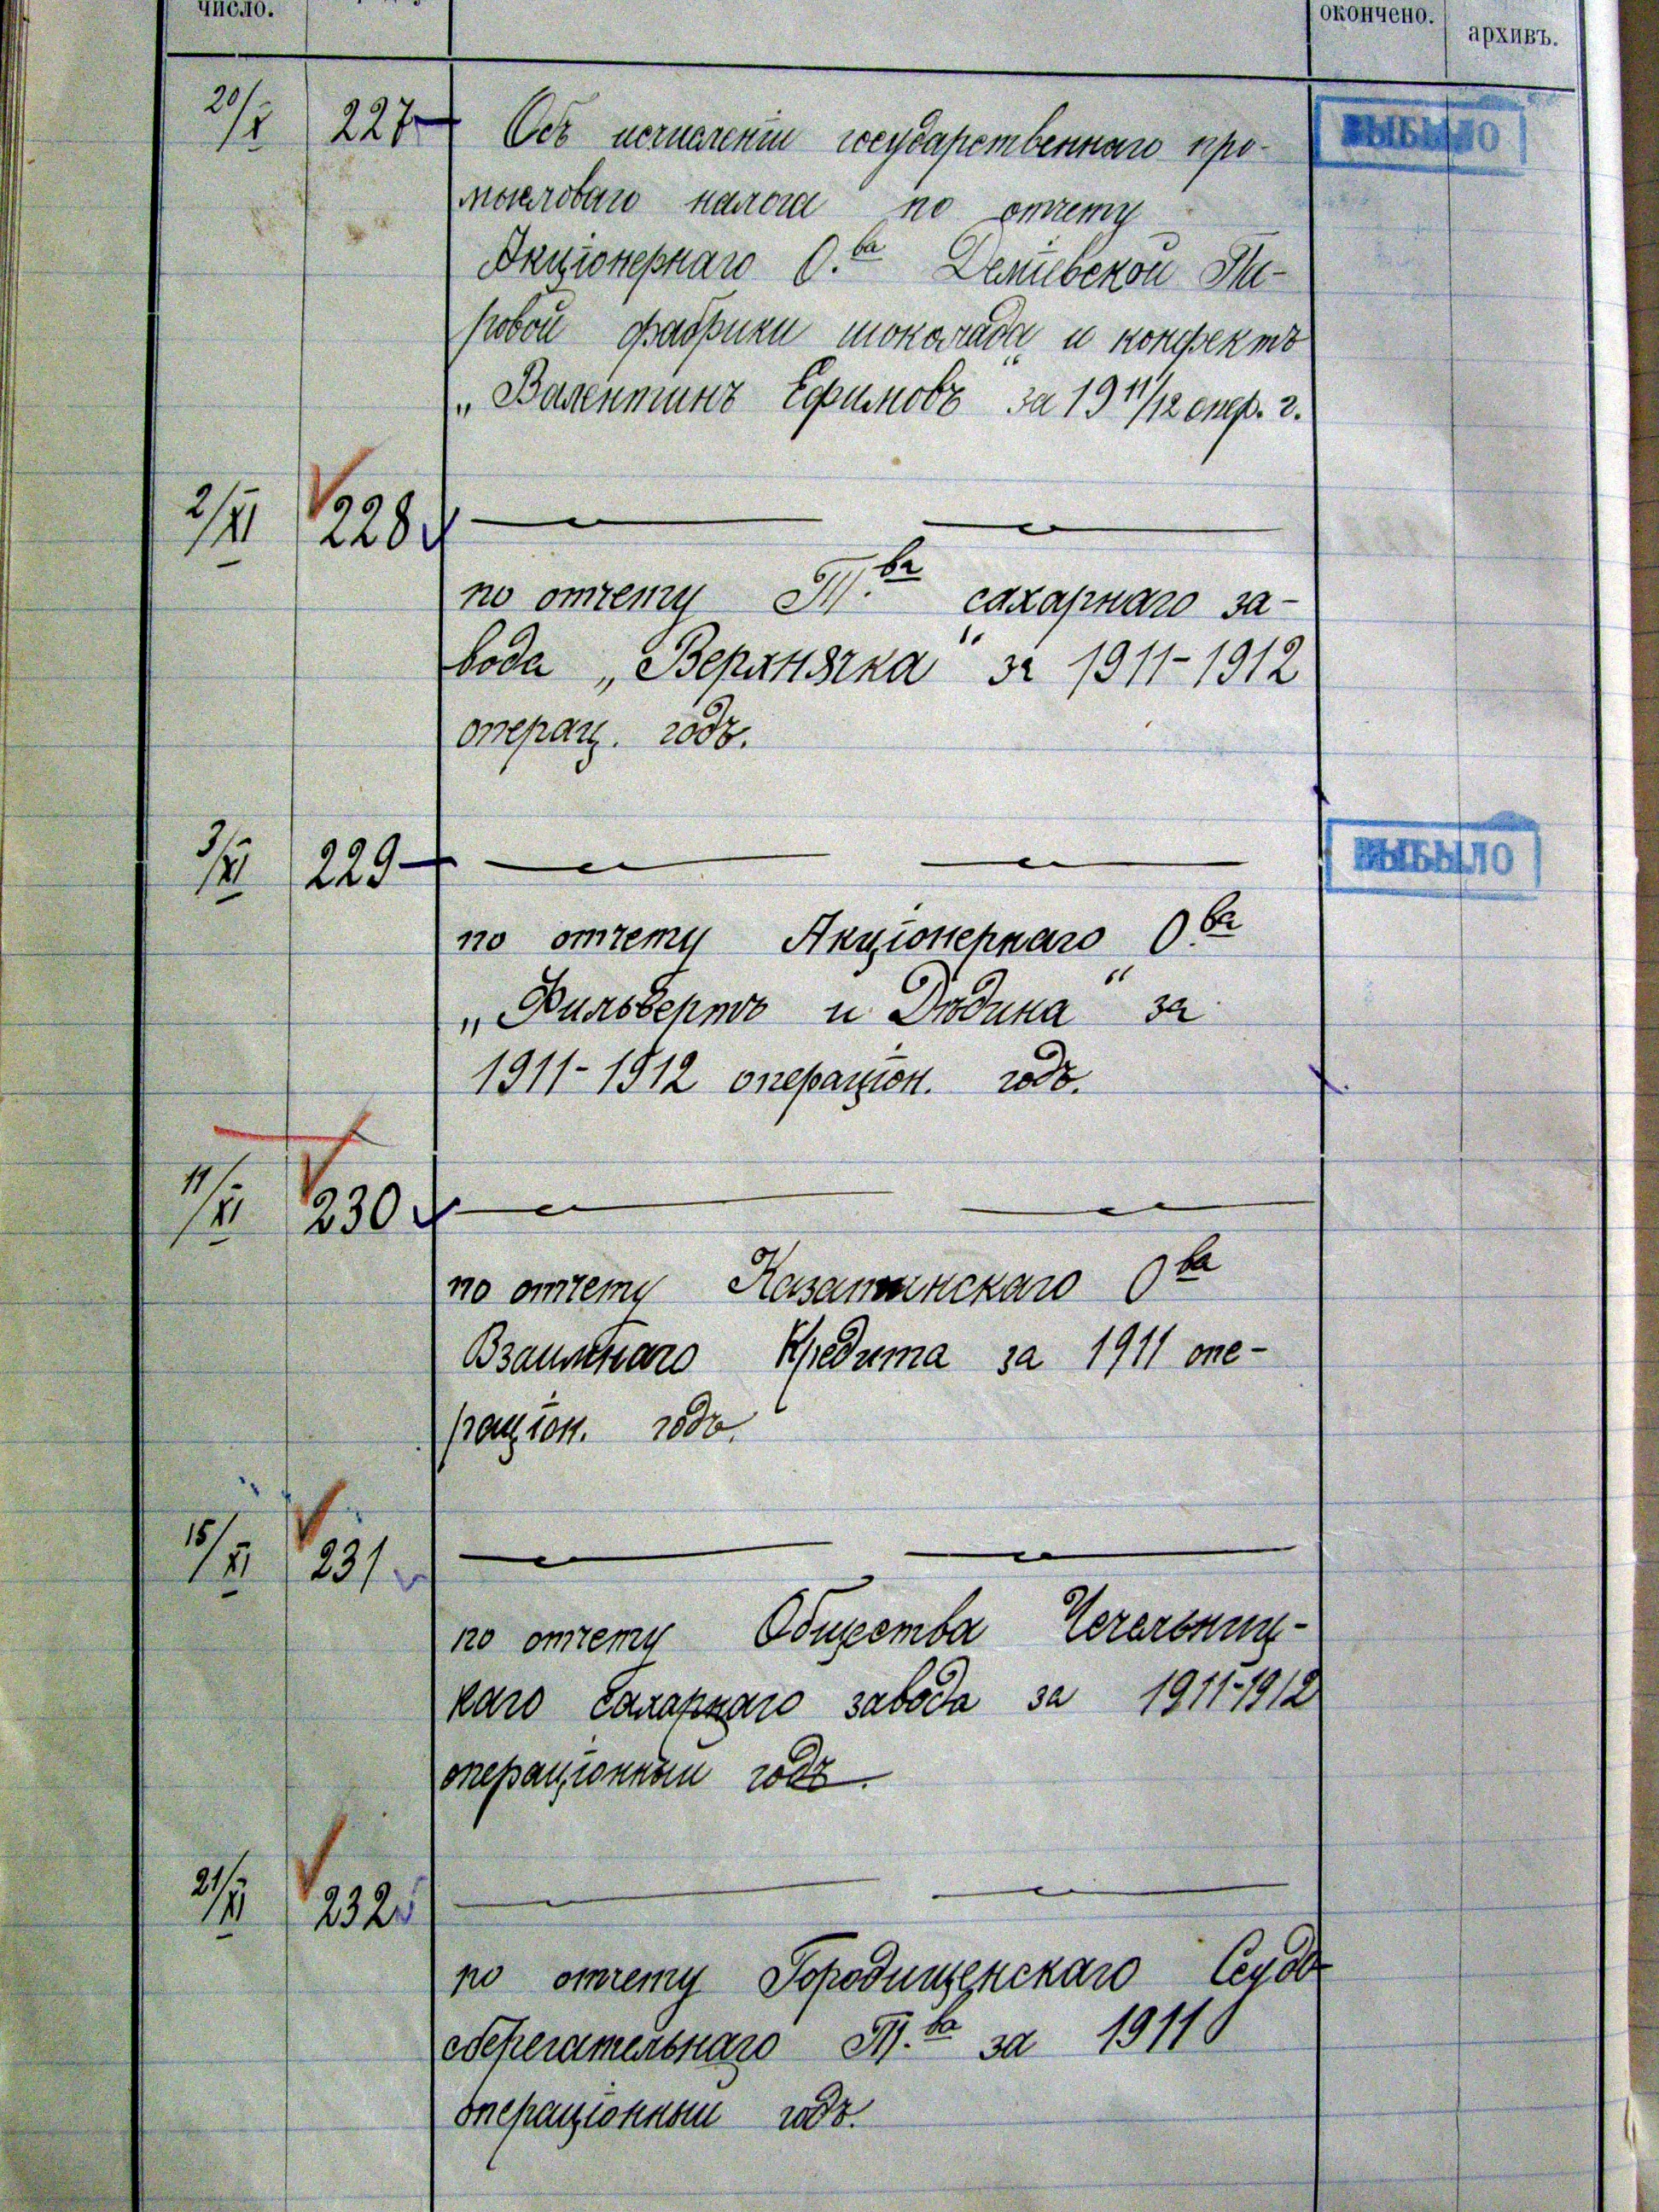 число.
окончено.
архивъ.
20/X 227 Объ исчисленіи государственнаго про-
ВЫБЫЛО
мысловаго налога по отчету
Акціонернаго О.ва Деміевской Па-
ровой фабрики шоколада и конфектъ
„Валентинъ Ефимовъ“ за 1911/12 опер. г.
2/XI 228
по отчету Т.ва сахарнаго за-
вода „Верхнячка“ за 1911-1912
операц. годъ.
3/XI 229
ВЫБЫЛО
по отчету Акціонернаго О.ва
„Фильвертъ и Дѣдина“ за
1911-1912 операціон. годъ.
11/XI 230
по отчету Казатинскаго О.ва
Взаимнаго Кредита за 1911 опе-
раціон. годъ.
15/XI 231
по отчету Общества Чечельниц-
каго Сахарнаго завода за 1911-1912
операціонный годъ.
21/XI 232
по отчету Городищенскаго Ссудо-
сберегательнаго Т.ва за 1911
операціонный годъ.